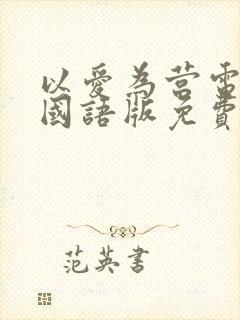 以愛為營電
國語版免費
范英書